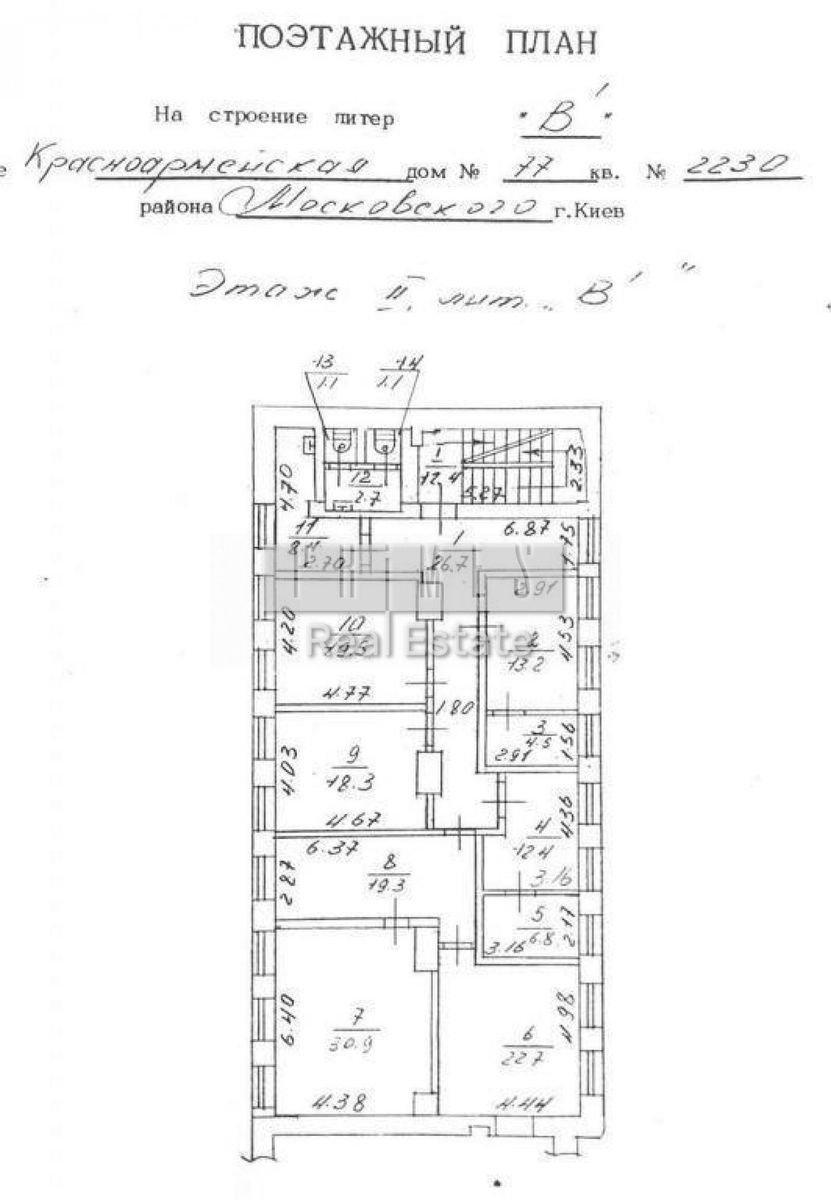 ПОЭТАЖНЫЙ ПЛАН
На строение литер "В'"
е Красноармейская дом № 77 кв. № 2230
района Московского г.Киев
Этаж II. лит. „В'"
13 14
1.1 1.1
I
12 12.4
2.7 5.27 2.33
4.70
11 6.87
8.4 1 1.75
2.70 26.7 2.91
4.20 10 2 4.53
19.5 13.2
Real Estate
4.77 1.80
3
4.5 1.56
2.91
4.03 9
18.3
4.67 4 4.36
12.4
6.37 3.16
2.87 8
19.3 5
6.8 2.17
3.16
6.40 7 6 4.98
30.9 22.7
4.38 4.44